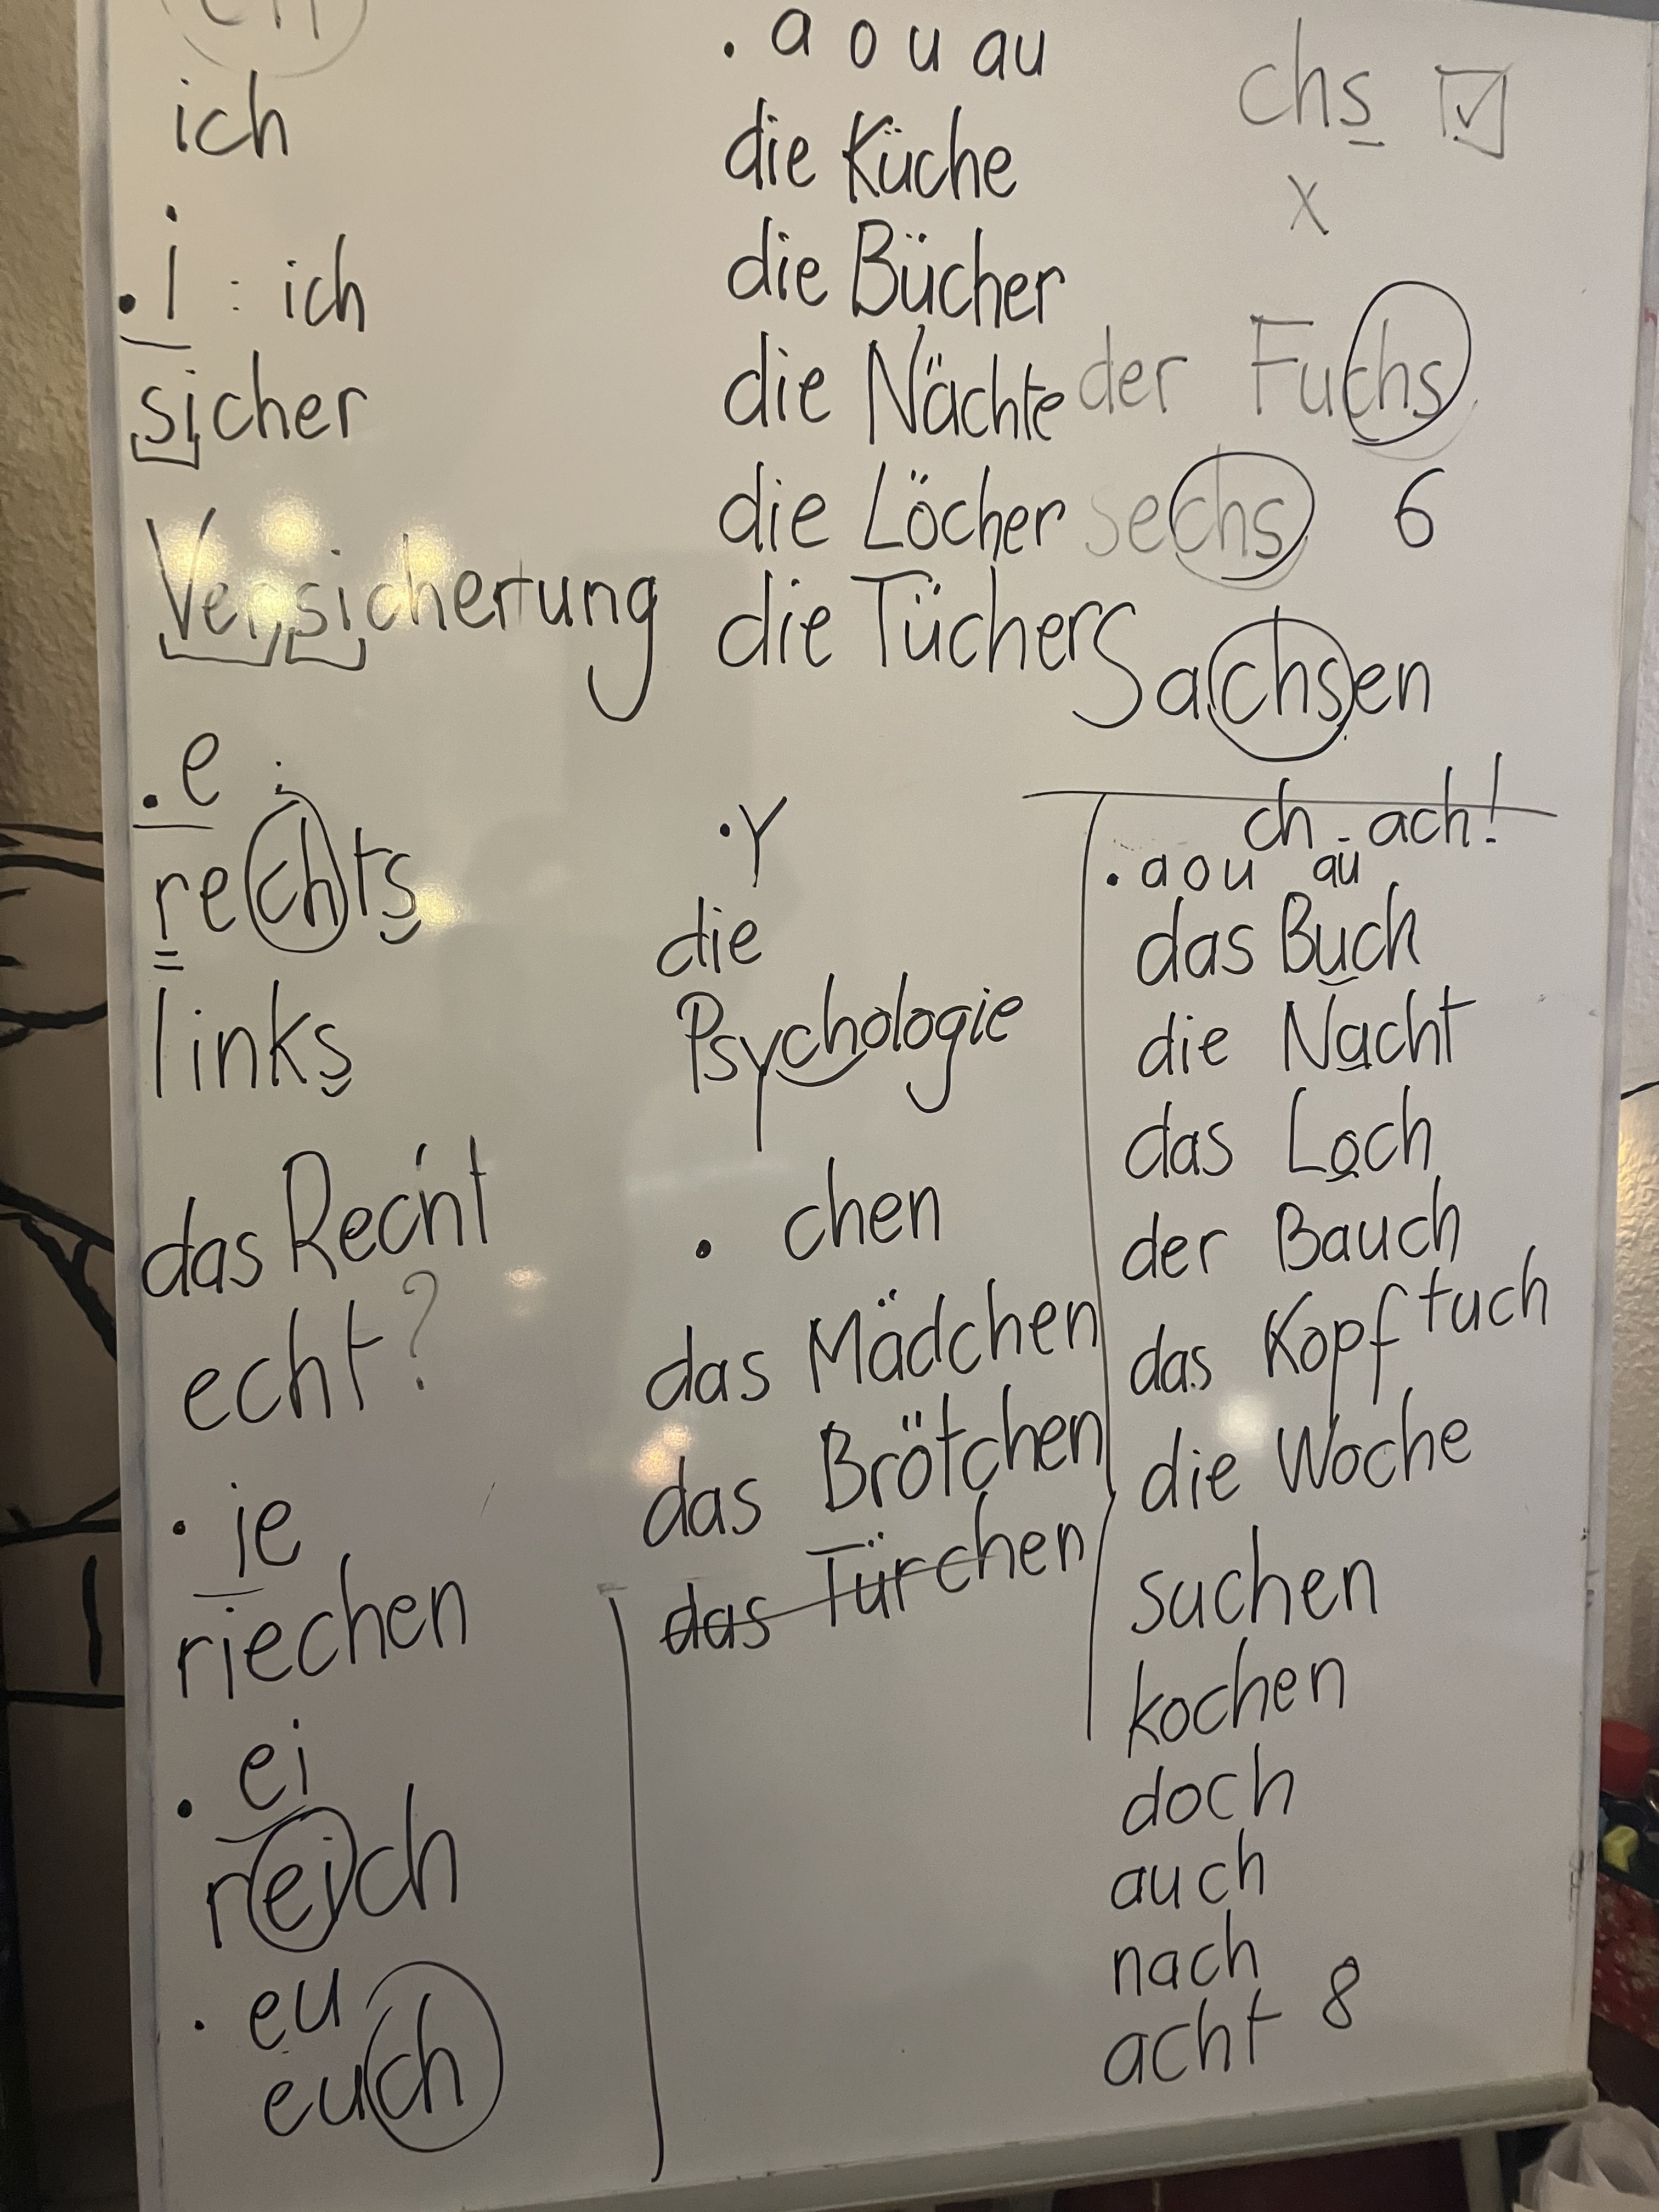 ich
. i : ich
sicher
Versicherung
. e :
rechts
links
das Recht
echt?
. ie
riechen
. ei
reich
. eu
euch
. a o u au
die Küche
die Bücher
die Nächte
die Löcher
die Tücher
. y
die
Psychologie
. chen
das Mädchen
das Brötchen
das Türchen
chs ☑
x
der Fuchs
sechs 6
Sachsen
ch - ach!
. a o u au
das Buch
die Nacht
das Loch
der Bauch
das Kopftuch
die Woche
suchen
kochen
doch
auch
nach
acht 8